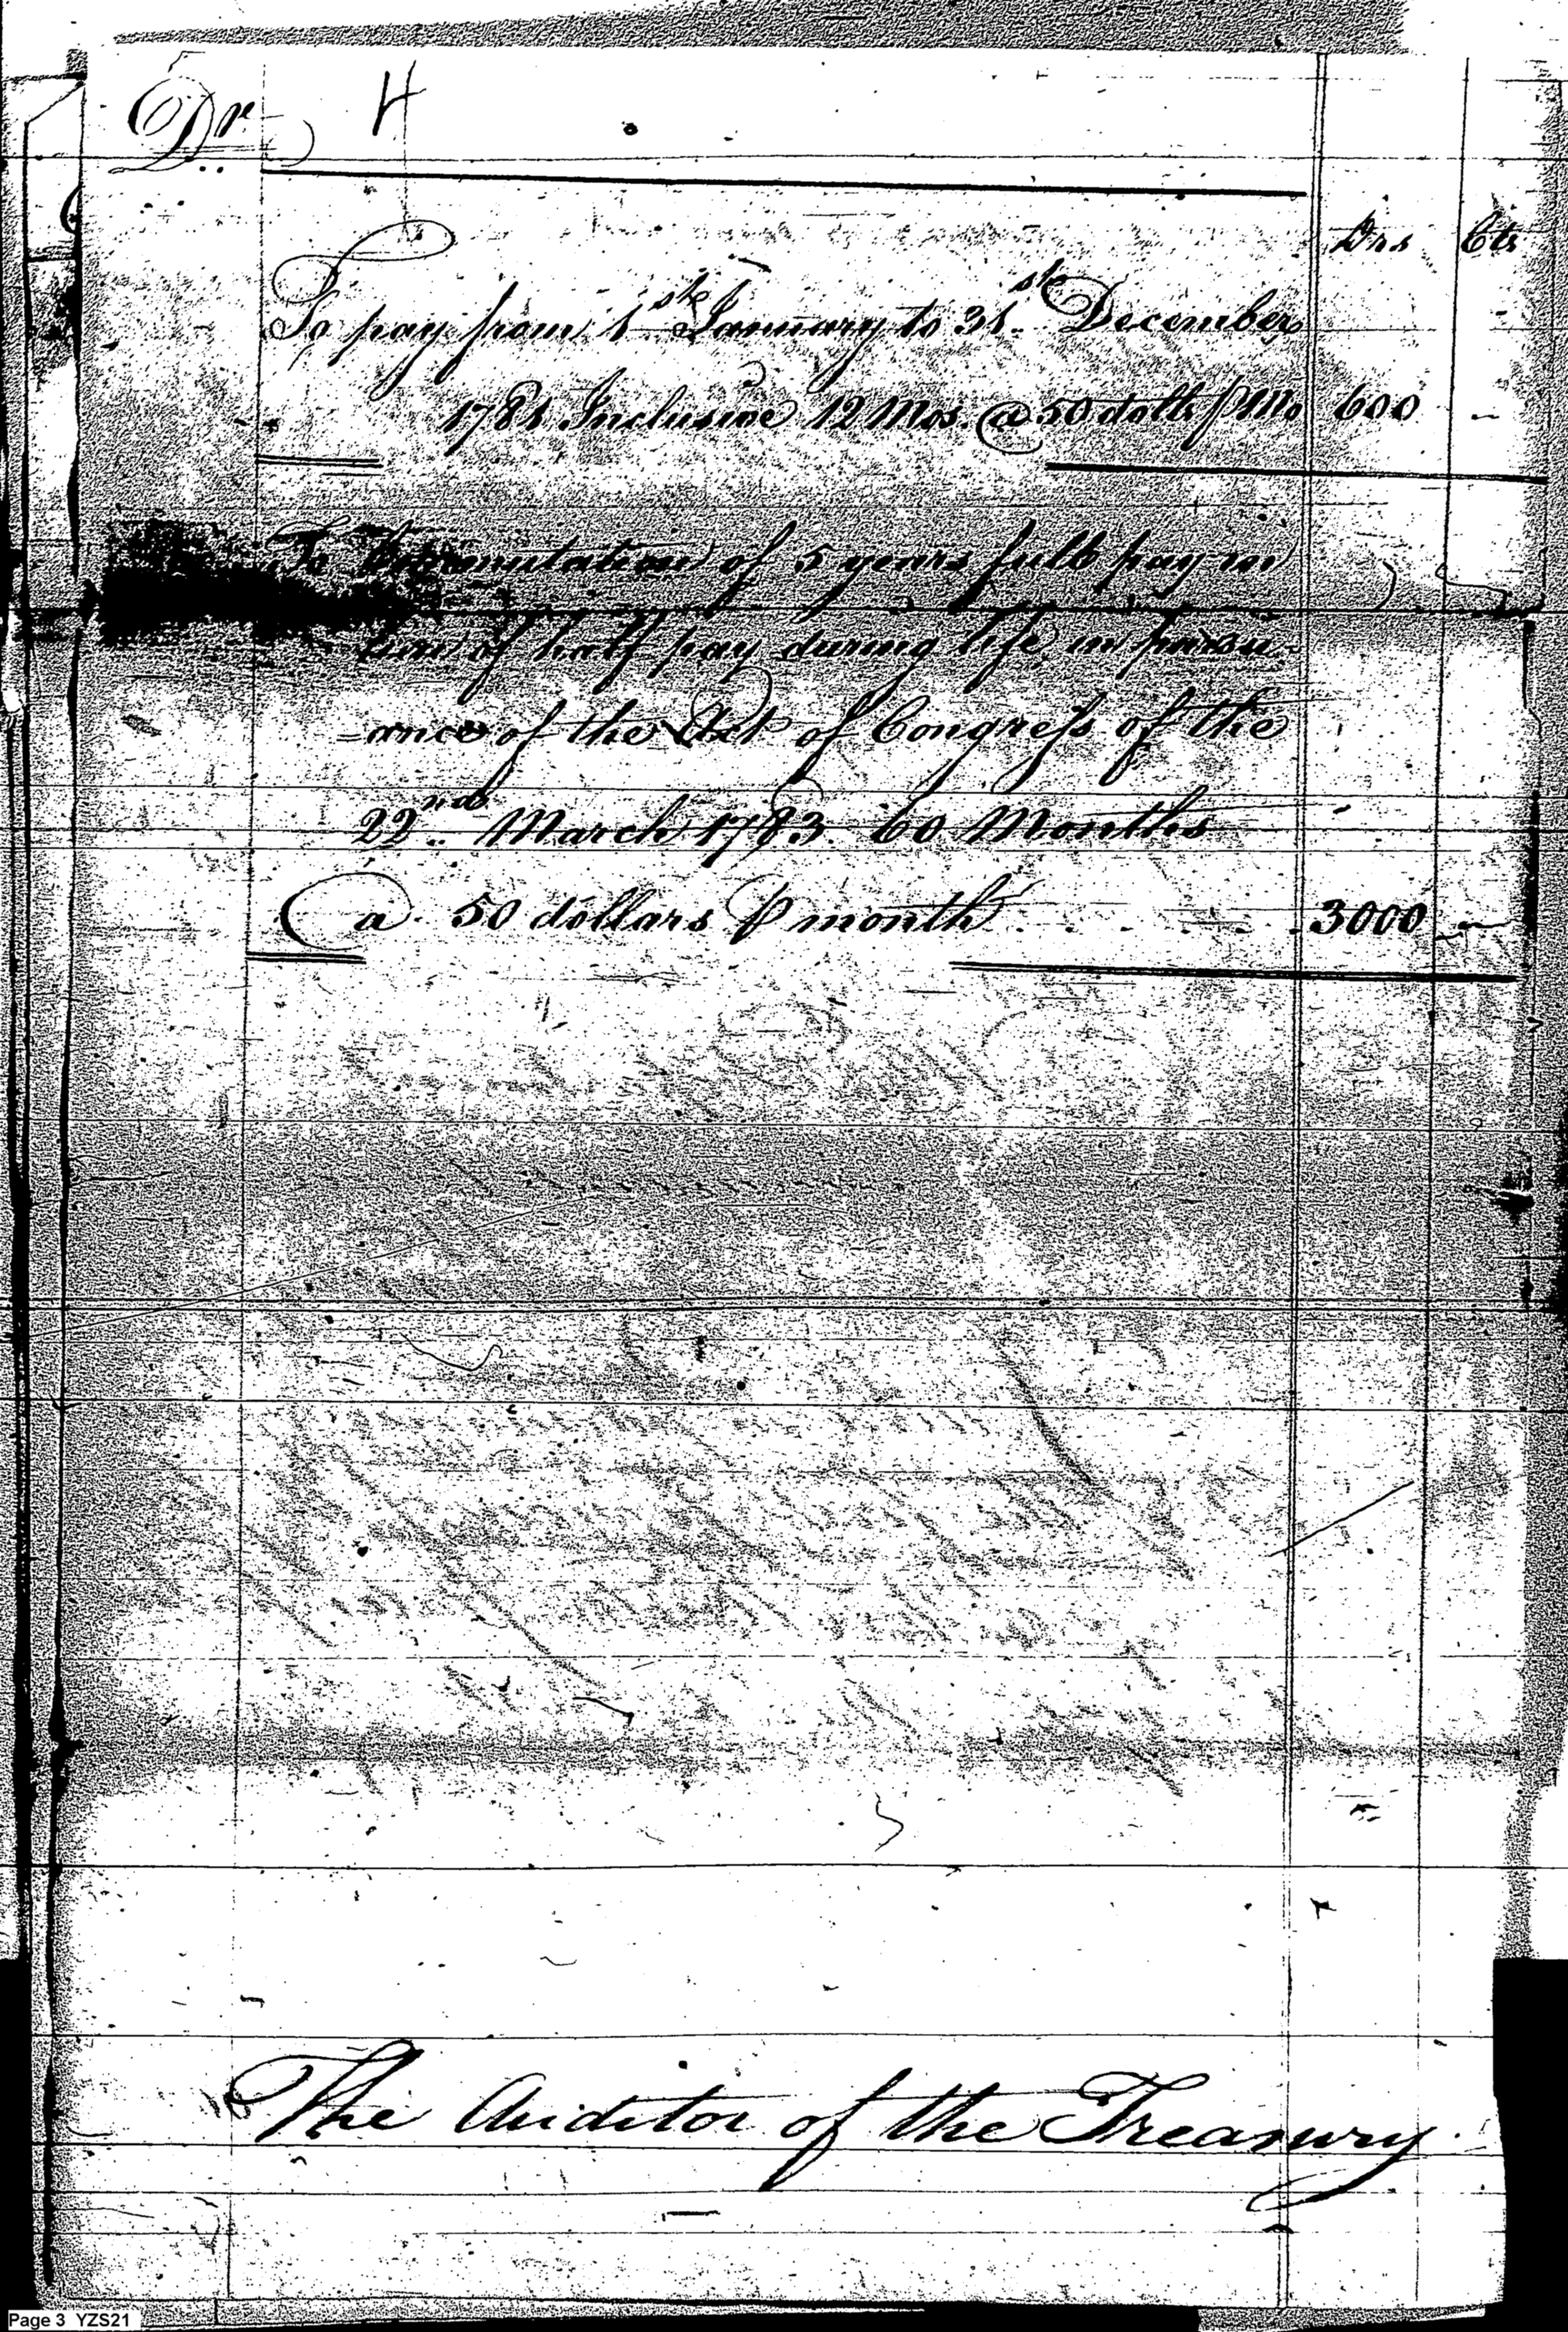 Dr H
Drs Cts
To pay from 1st January to 31st December
1781 Inclusive 12 Mos. @ 50 dolls P Mo 600
To Commutation of 5 years full pay in
lieu of half pay during life in pursu-
=ance of the Act of Congress of the
22nd March 1783. 60 Months
@ 50 dollars P month . . . . . . 3000
The Auditor of the Treasury.
Page 3 YZS21